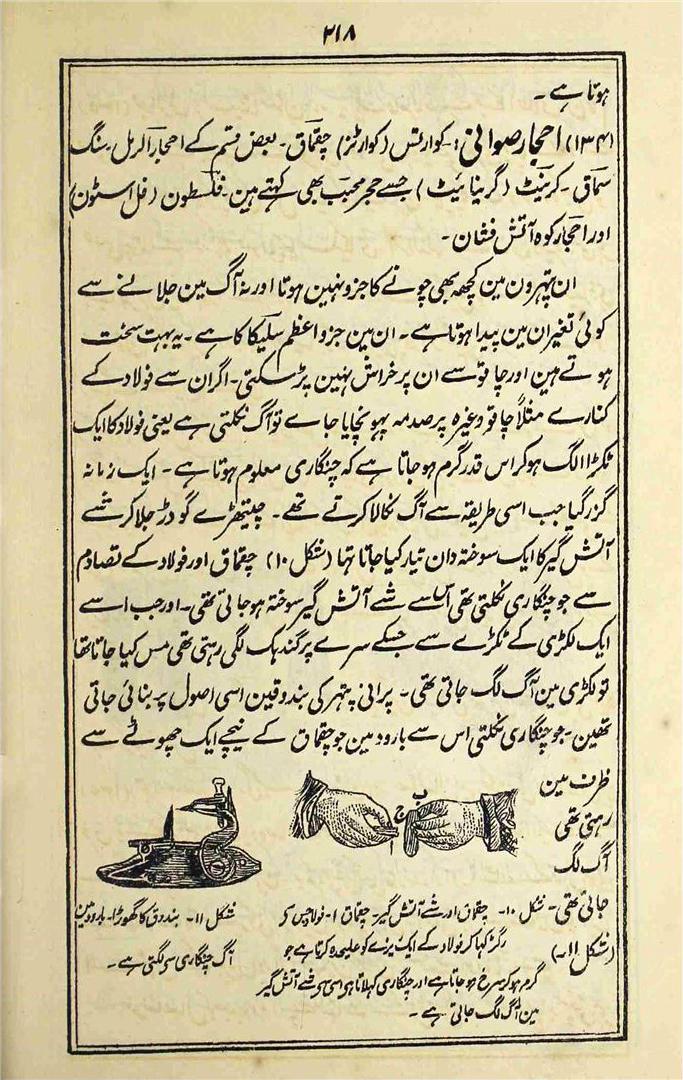 ۲۱۸
ہوتا ہے ۔
(۱۳۴) احجار صوانی :۔ کوارٹس (کوارٹز) چقماق ۔ بعض قسم کے احجار الرمل ۔ سنگ
سماق ۔ کرینٹ (گرینائیٹ) جسے حجر محبب بھی کہتے ہین ۔ فلسطون (فل اسٹون)
اور احجار کوہ آتش فشان ۔
ان پتہرون مین کچھ بھی چونے کا جزو نہین ہوتا اور نہ آگ مین جلانے سے
کوئی تغیر ان مین پیدا ہوتا ہے ۔ ان مین جزو اعظم سلیکا کا ہے ۔ یہ بہت سخت
ہوتے ہین اور چاقو سے ان پر خراش نہین پڑ سکتی ۔ اگر ان سے فولاد کے
کنارے مثلاً چاقو وغیرہ پر صدمہ پہونچایا جاے تو آگ نکلتی ہے یعنی فولاد کا ایک
ٹکڑا الگ ہو کر اس قدر گرم ہو جاتا ہے کہ چنگاری معلوم ہوتا ہے ۔ ایک زمانہ
گزر گیا جب اسی طریقہ سے آگ نکالا کرتے تھے ۔ چیتھڑے گودڑ جلا کر شے
آتش گیر کا ایک سوختہ دان تیار کیا جاتا تہا (شکل ۱۰) چقماق اور فولاد کے تصادم
سے جو چنگاری نکلتی تھی اس سے شے آتش گیر سوختہ ہو جاتی تھی ۔ اور جب اسے
ایک لکڑی کے ٹکڑے سے جسکے سرے پر گندہک لگی رہتی تھی مس کیا جاتا تھا
تو لکڑی مین آگ لگ جاتی تھی ۔ پرانی پتہر کی بندوقین اسی اصول پر بنائی جاتی
تھین ۔ جو چنگاری نکلتی اس سے بارود مین جو چقماق کے نیچے ایک چھوٹے سے
ظرف مین
رہتی تھی
آگ لگ
جاتی تھی ۔
(شکل ۱۱ ۔)
ب
ج
ا
شکل ۱۰ ۔ چقماق اور شے آتش گیر ۔ چقماق ا ۔ فولاد جس سے
رگڑ کہا کر فولاد کے ایک پرزے کو علیحدہ کرتا ہے جو
گرم ہو کر سرخ ہو جاتا ہے اور چنگاری کہلاتا ہے اسی سے شے آتش گیر
مین آگ لگ جاتی ہے ۔
شکل ۱۱ ۔ بندوق کا گھوڑا ۔ بارود مین
آگ چنگاری سے لگتی ہے ۔